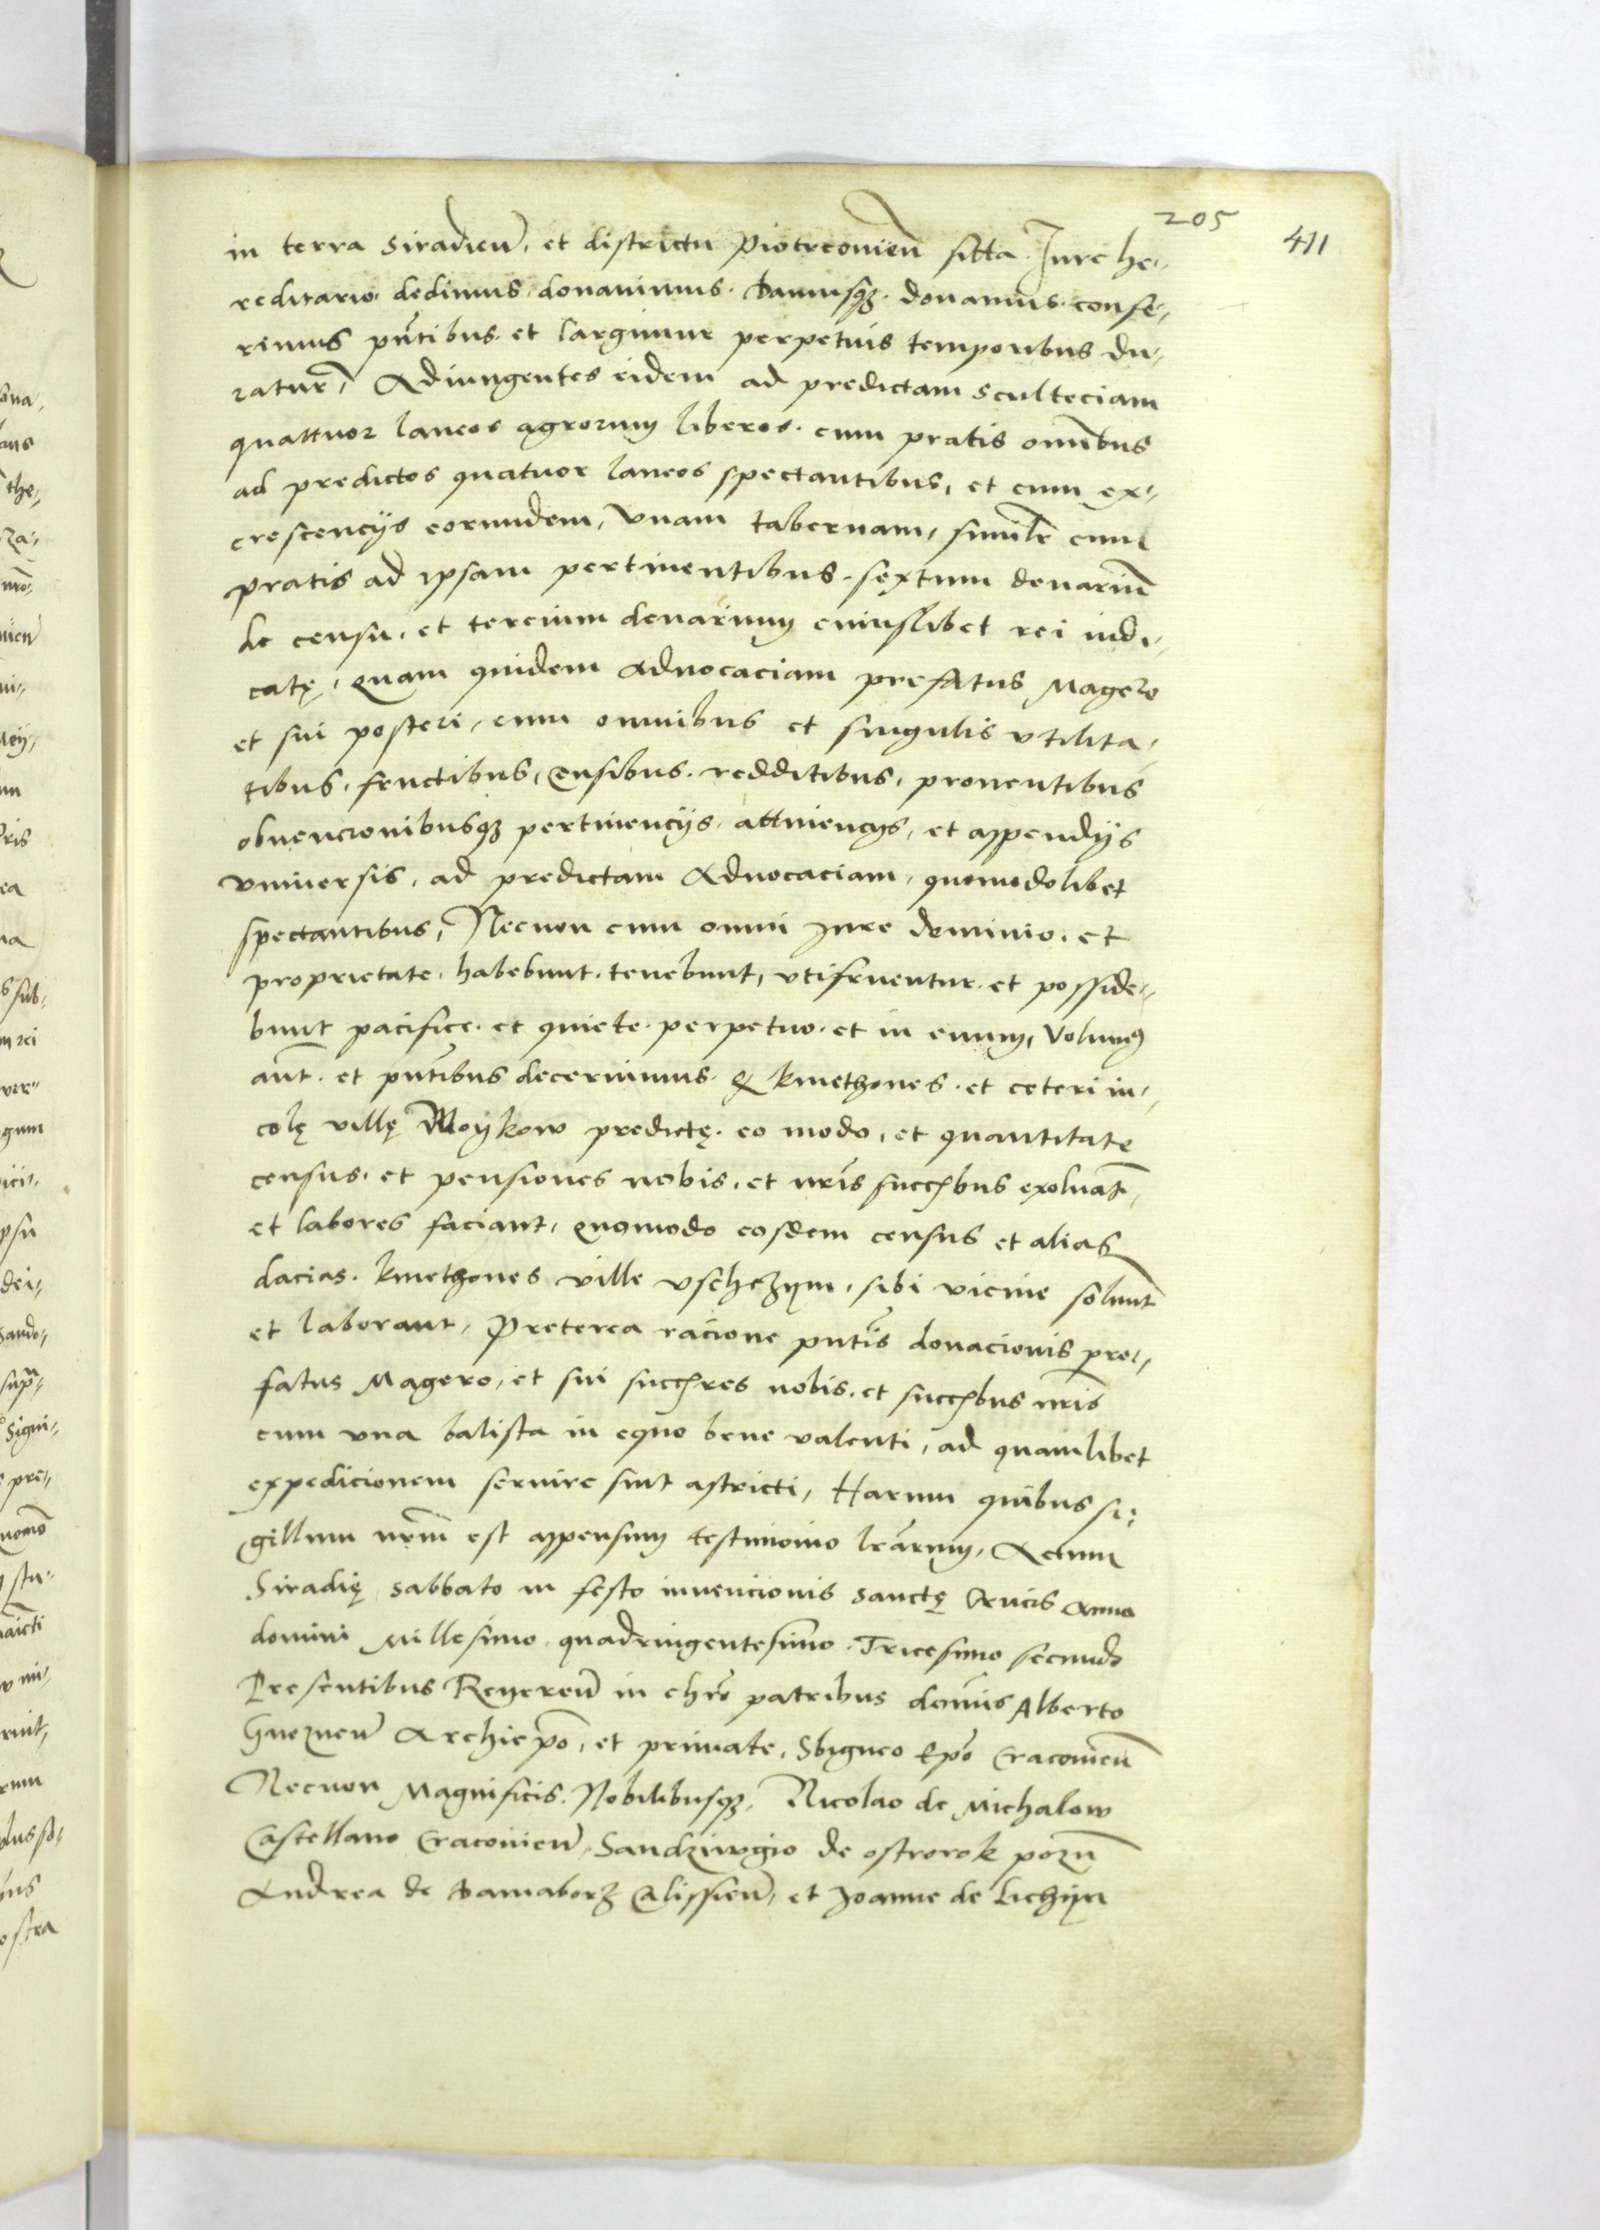 205
411
in terra Siradień, et districtu Piotrcovień sitta. Jure he-
reditario dedimus donavimus. Damusqȝ. donamus. confe-
rimus pñtibus et largimur perpetuis temporibus du-
ratur̃, Adiungentes eidem ad predictam Sculteciam
quattuor laneos agrorum liberos. cum pratis omibus
ad predictos quatuor laneos spectantibus, et cum ex-
crescencijs eorumdem, vnam tabernam, similr cum
pratis ad ipsam pertinentibus. sextum denariũ
de censu, et tercium denarium cuiuslibet rei iudi-
catę, quam quidem Advocaciam prefatus Magero
et sui posteri, cum omnibus et singulis vtilita-
tibus, fructibus, Censibus. redditibus, proventibus
obvencionibusqȝ pertinencijs. attinencijs, et appendijs
vniversis, ad predictam Advocaciam, quomodolibet
spectantibus, Necnon cum omni Jure dominio. et
proprietate, habebunt. tenebunt, vtifruentur. et posside-
bunt pacifice. et quiete. perpetuo. et in evum, Volumus
aũt. et pñtibus decernimus. q̃ kmethones. et ceteri in-
colę villę Moykow predictę. eo modo, et quantitate
census. et pensiones nobis, et nr̃is succ̃bus exolvãt,
et labores faciant, quomodo eosdem census et alias
dacias. kmethones ville vschczym, sibi vicine solvunt
et laborant, Preterea racione pñtis donacionis pre-
fatus Magero, et sui succ̃res nobis. et succ̃bus nr̃is
cum vna balista in equo bene valenti, ad quamlibet
expedicionem servire sint astricti, Harum quibus si-
gillum nr̃m est appensum testimonio lr̃arum, Actum
Siradię sabbato in festo invencionis sanctę Crucis Anno
domini Millesimo. quadringentesimo. Tricesimo secundo
Presentibus Reveren̄ in chr̃o patribus domĩs Alberto
Gneznen̄ Archiep̃o, et primate, Sbigneo Ep̃o Cracovień
Necnon Magnificis. Nobilibusqȝ, Nicolao de Michalow
Castellano Cracovień, Sandziwogio de ostrorok pozñ
Andrea de Damaborz Calissień, et Joanne de Lichijn